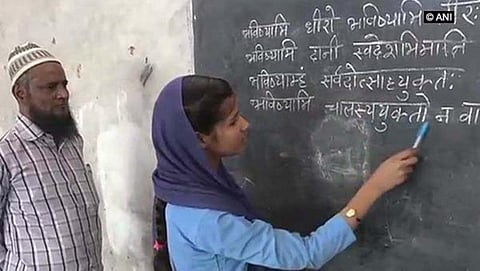 © ANI
भविष्यामि धीरो भविष्यामि वीरः
भविष्यामि दानी स्वदेशाभिमानि
भविष्याम्हं सर्वदोत्साहयुक्तः
भविष्यामि चालस्ययुक्तो न वा